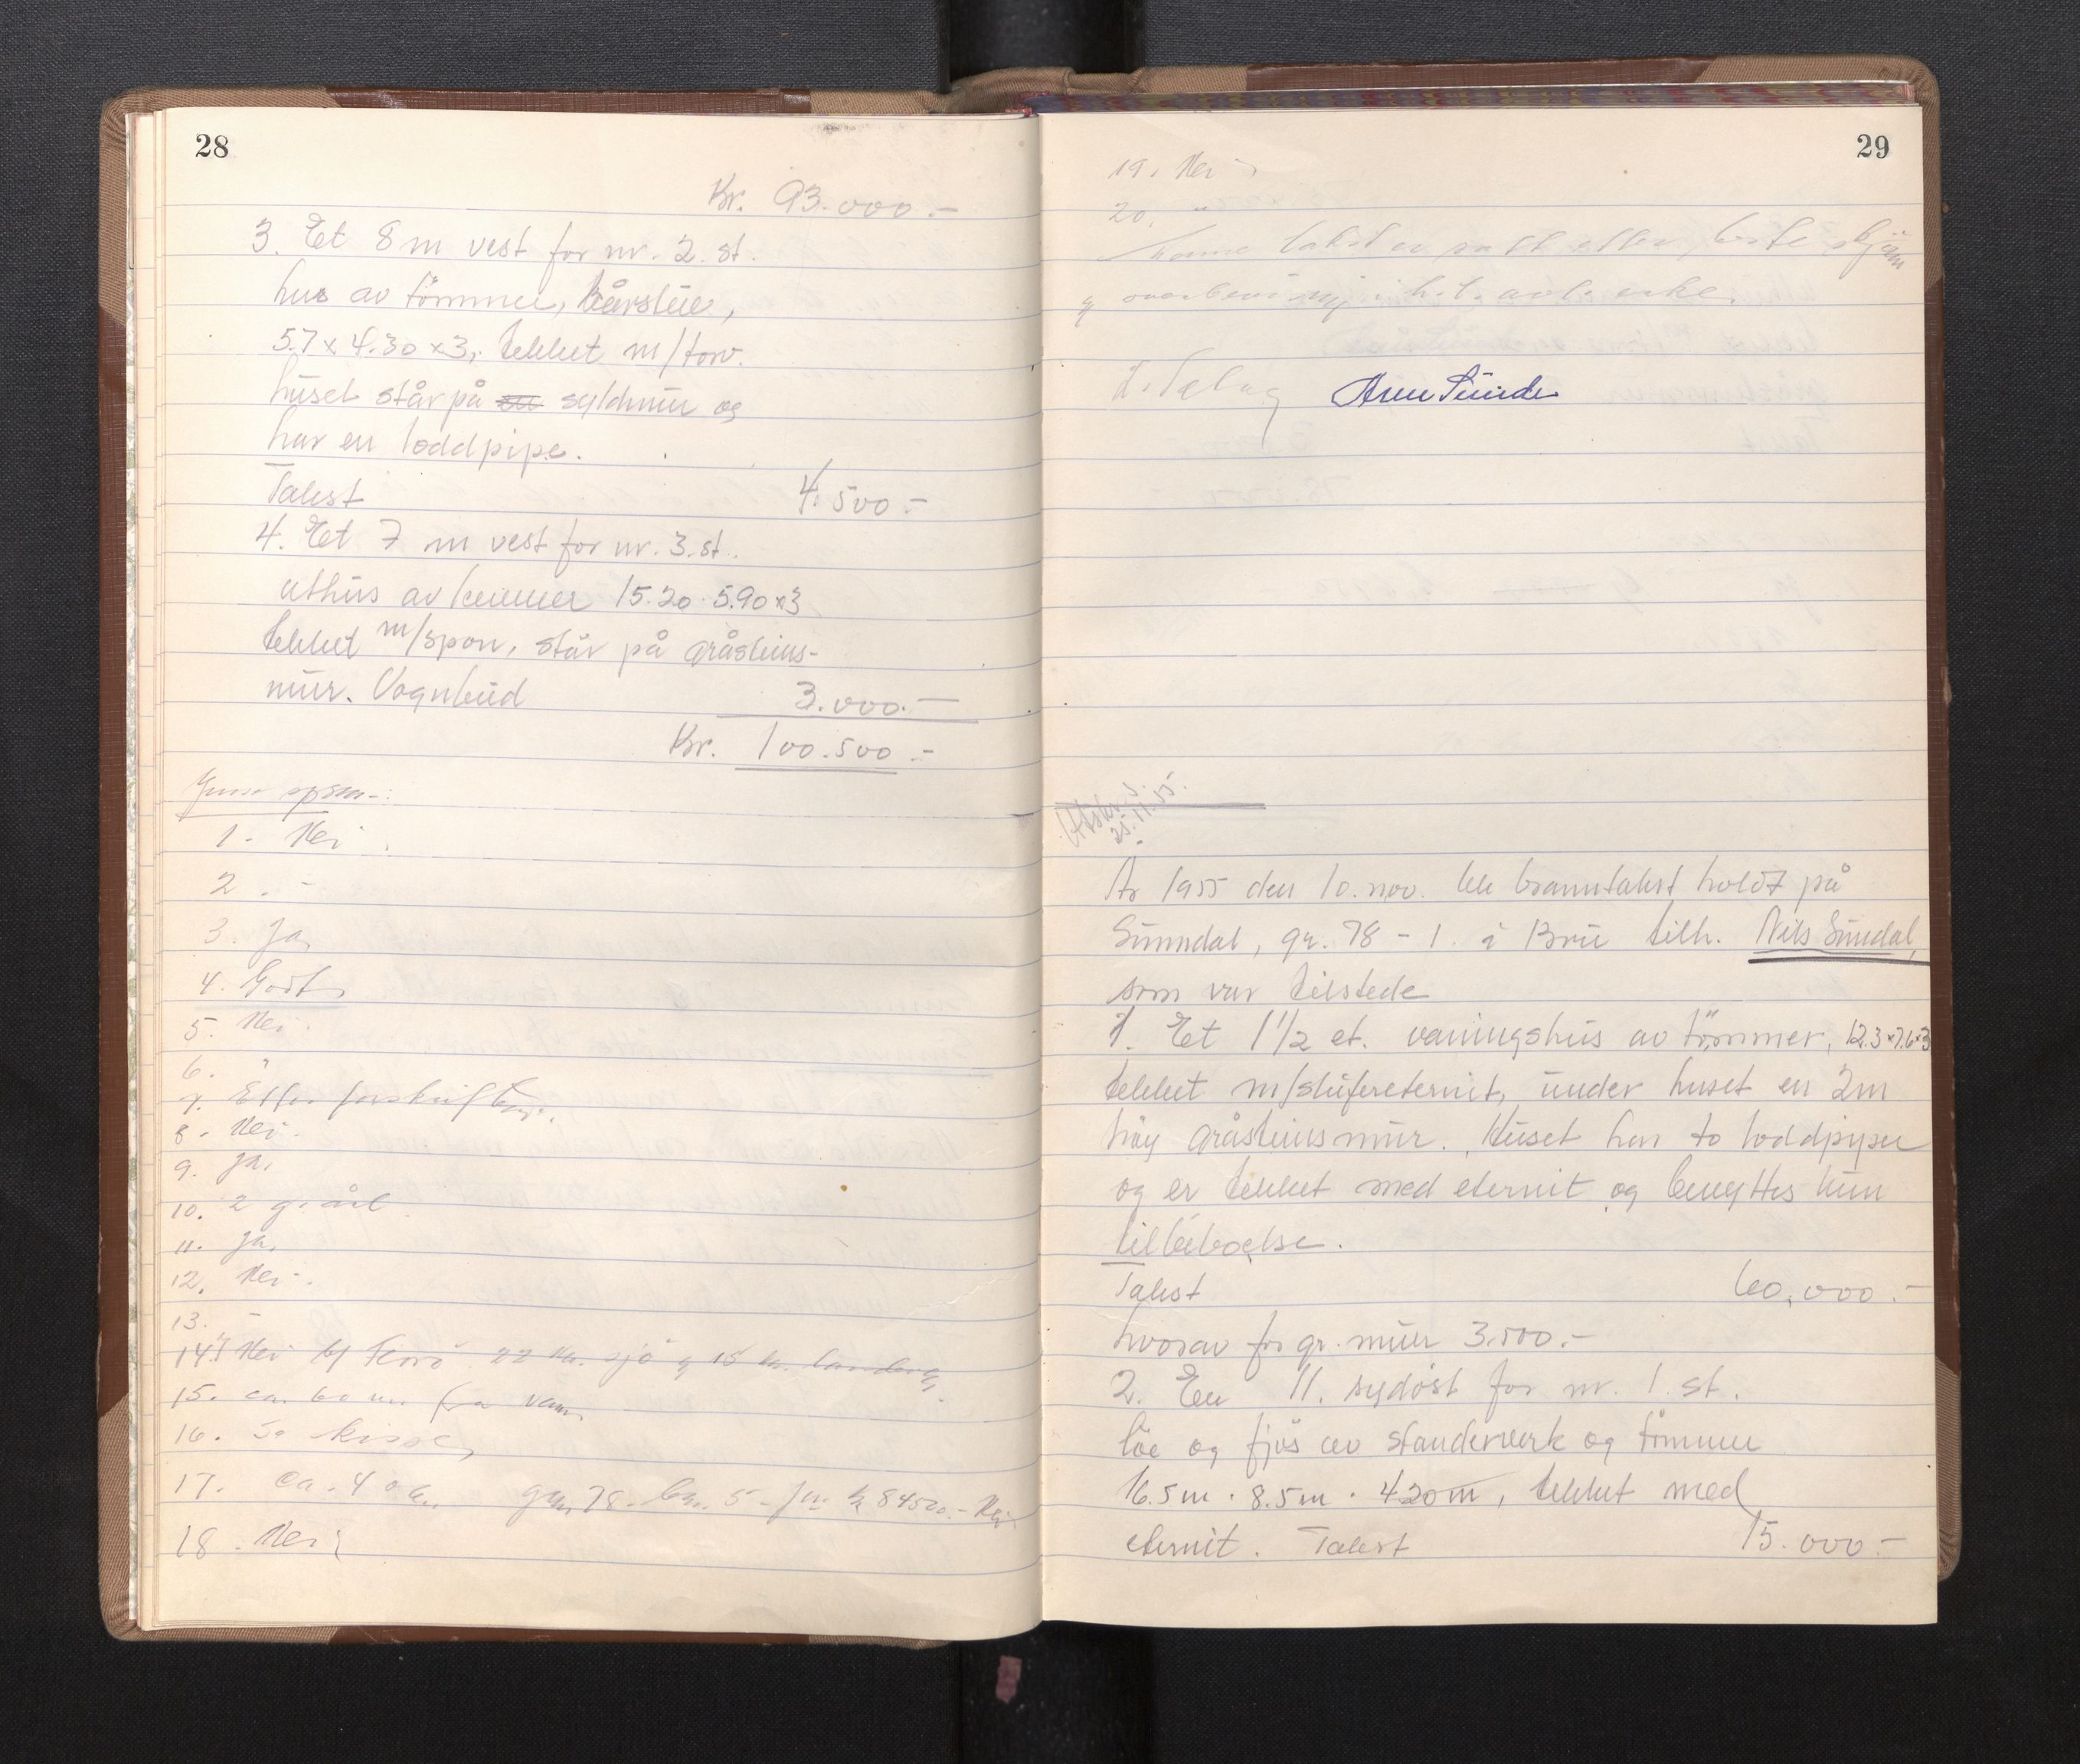 28
Kr. 93.000.-
3. Et 8 m vest for nr. 2. st.
hus av tömmer, kårstue,
5.7 x 4.30 x 3, tekket m/torv.
huset står på syldmur og
har en loddpipe.
Takst 4.500.-
4. Et 7 m vest for nr. 3. st.
uthus av tømmer 15.20 · 5.90 x 3
tekket m/spon, står på gråsteins-
mur. Vognbud 3.000.-
Kr. 100.500.-
1. Nei
2. -
3. Ja
4. Godt
5. Nei.
6. "
7. Efter forskriftene.
8. Nei.
9. Ja.
10. 2 g. årl
11. Ja.
12. Nei.
13. -
14. Nei Florö 22 km. sjö og 15 km.
15. ca. 60 m. fra vann
16. Se kisse
17. ca. 40 m. gnr. 78. bnr. 5 - 84500.- Nei
18. Nei
29
19. Nei
20. "
Denne takst er satt etter beste skjön
og overbevisning i h.t.
Arne Sunde
Avskr. s.
25.11.55.
År 1955 den 10. nov. ble branntakst holdt på
Sunndal, gr. 78 - 1 i Bru tilh. Nils Sundal,
som var tilstede
1. Et 1 1/2 et. vaningshus av tömmer, 12.3 x 7.6 x 3
tekket m/skifereternit, under huset en 2m
höy gråsteinsmur. Huset har to loddpiper
og er tekket med eternit og benyttes kun
til beboelse.
Takst 60.000.-
hvorav for gr. mur 3.500.-
2. En 11. sydöst for nr. 1. st.
löe og fjös av standerverk og tömmer
16.5 m · 8.5 m · 4.20 m, tekket med
eternit. Takst 15.000.-